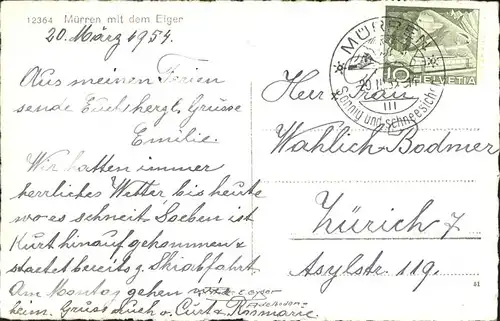 12364 Mürren mit dem Eiger
20. März 1954.
Aus meinen Ferien
sende Euch hergl. Grüsse
Emilie.
Wir hatten immer
herrliches Wetter bis heute
wo es schneit. Soeben ist
Kurt hinauf gekommen &
startet bereits z. Skiabfahrt.
Am Montag gehen wir
heim. Gruss auch v. Curt & Rosmarie
MÜRREN
20.III.54
III
Sonnig und schneesicher
10 HELVETIA
Herr & Frau
Wahlich-Bodmer
Zürich 7
Asylstr. 119.